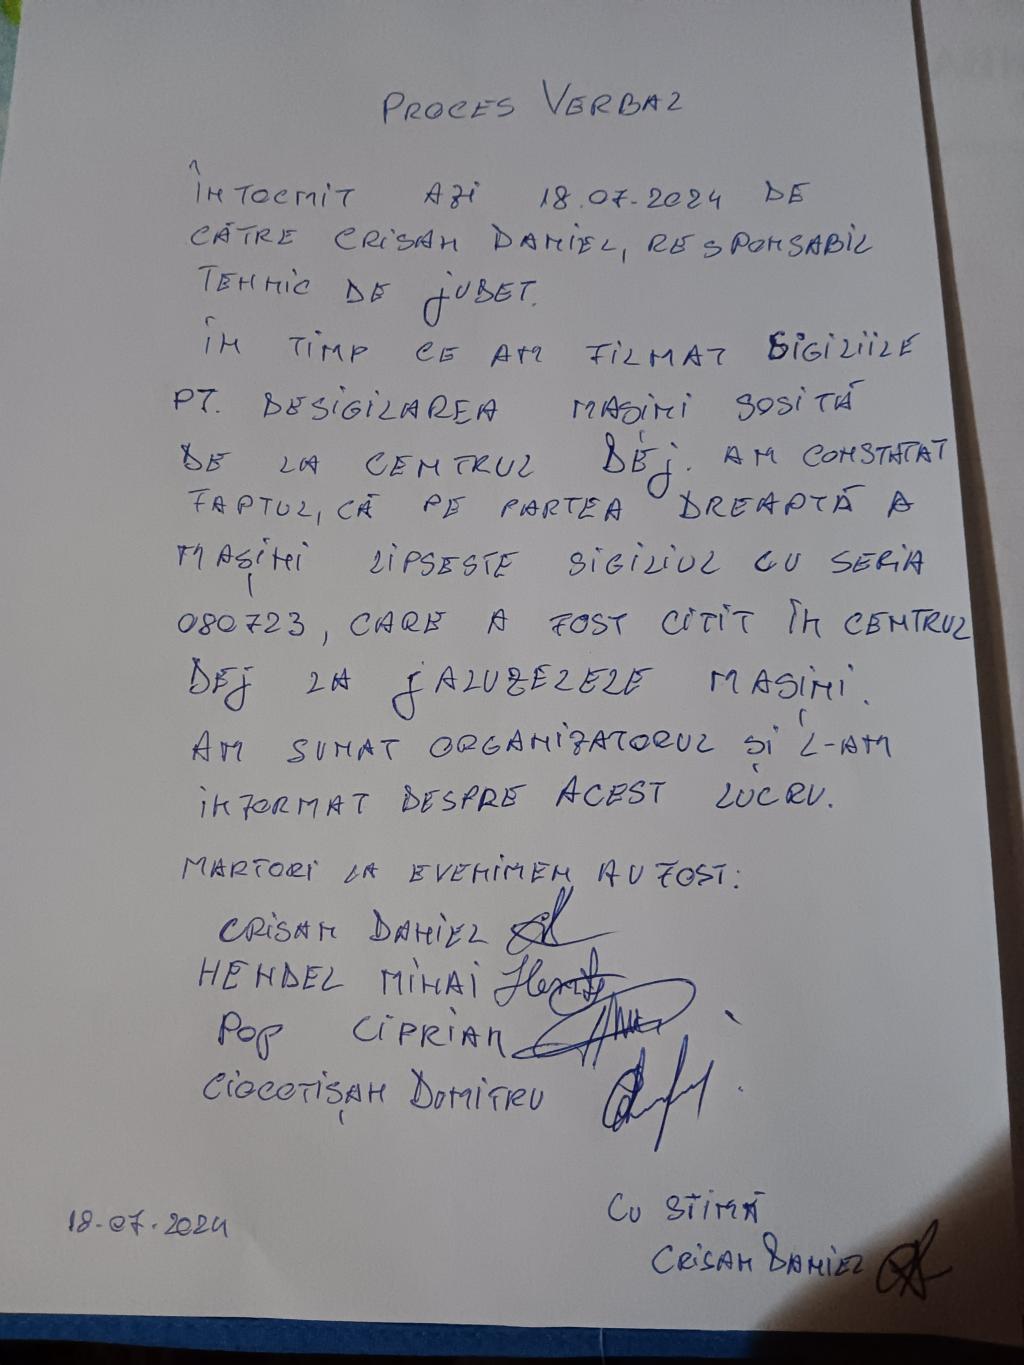 PROCES VERBAL
ÎNTOCMIT AZI 18.07.2024 DE
CĂTRE CRISAN DANIEL, RESPONSABIL
TEHNIC DE JUDET.
ÎN TIMP CE AM FILMAT SIGILIILE
PT. DESIGILAREA MAȘINI SOSITĂ
DE LA CENTRUL DEJ. AM CONSTATAT
FAPTUL, CĂ PE PARTEA DREAPTĂ A
MAȘINI LIPSESTE SIGILIUL CU SERIA
080723, CARE A FOST CITIT ÎN CENTRUL
DEJ LA JALUZELELE MAȘINI.
AM SUNAT ORGANIZATORUL ȘI L-AM
INFORMAT DESPRE ACEST LUCRU.
MARTORI LA EVENIMEN AU FOST:
CRISAN DANIEL
HENDEL MIHAI
POP CIPRIAN
CIOCOTIȘAN DOMITRU
CU STIMĂ
18.07.2024
CRISAN DANIEL